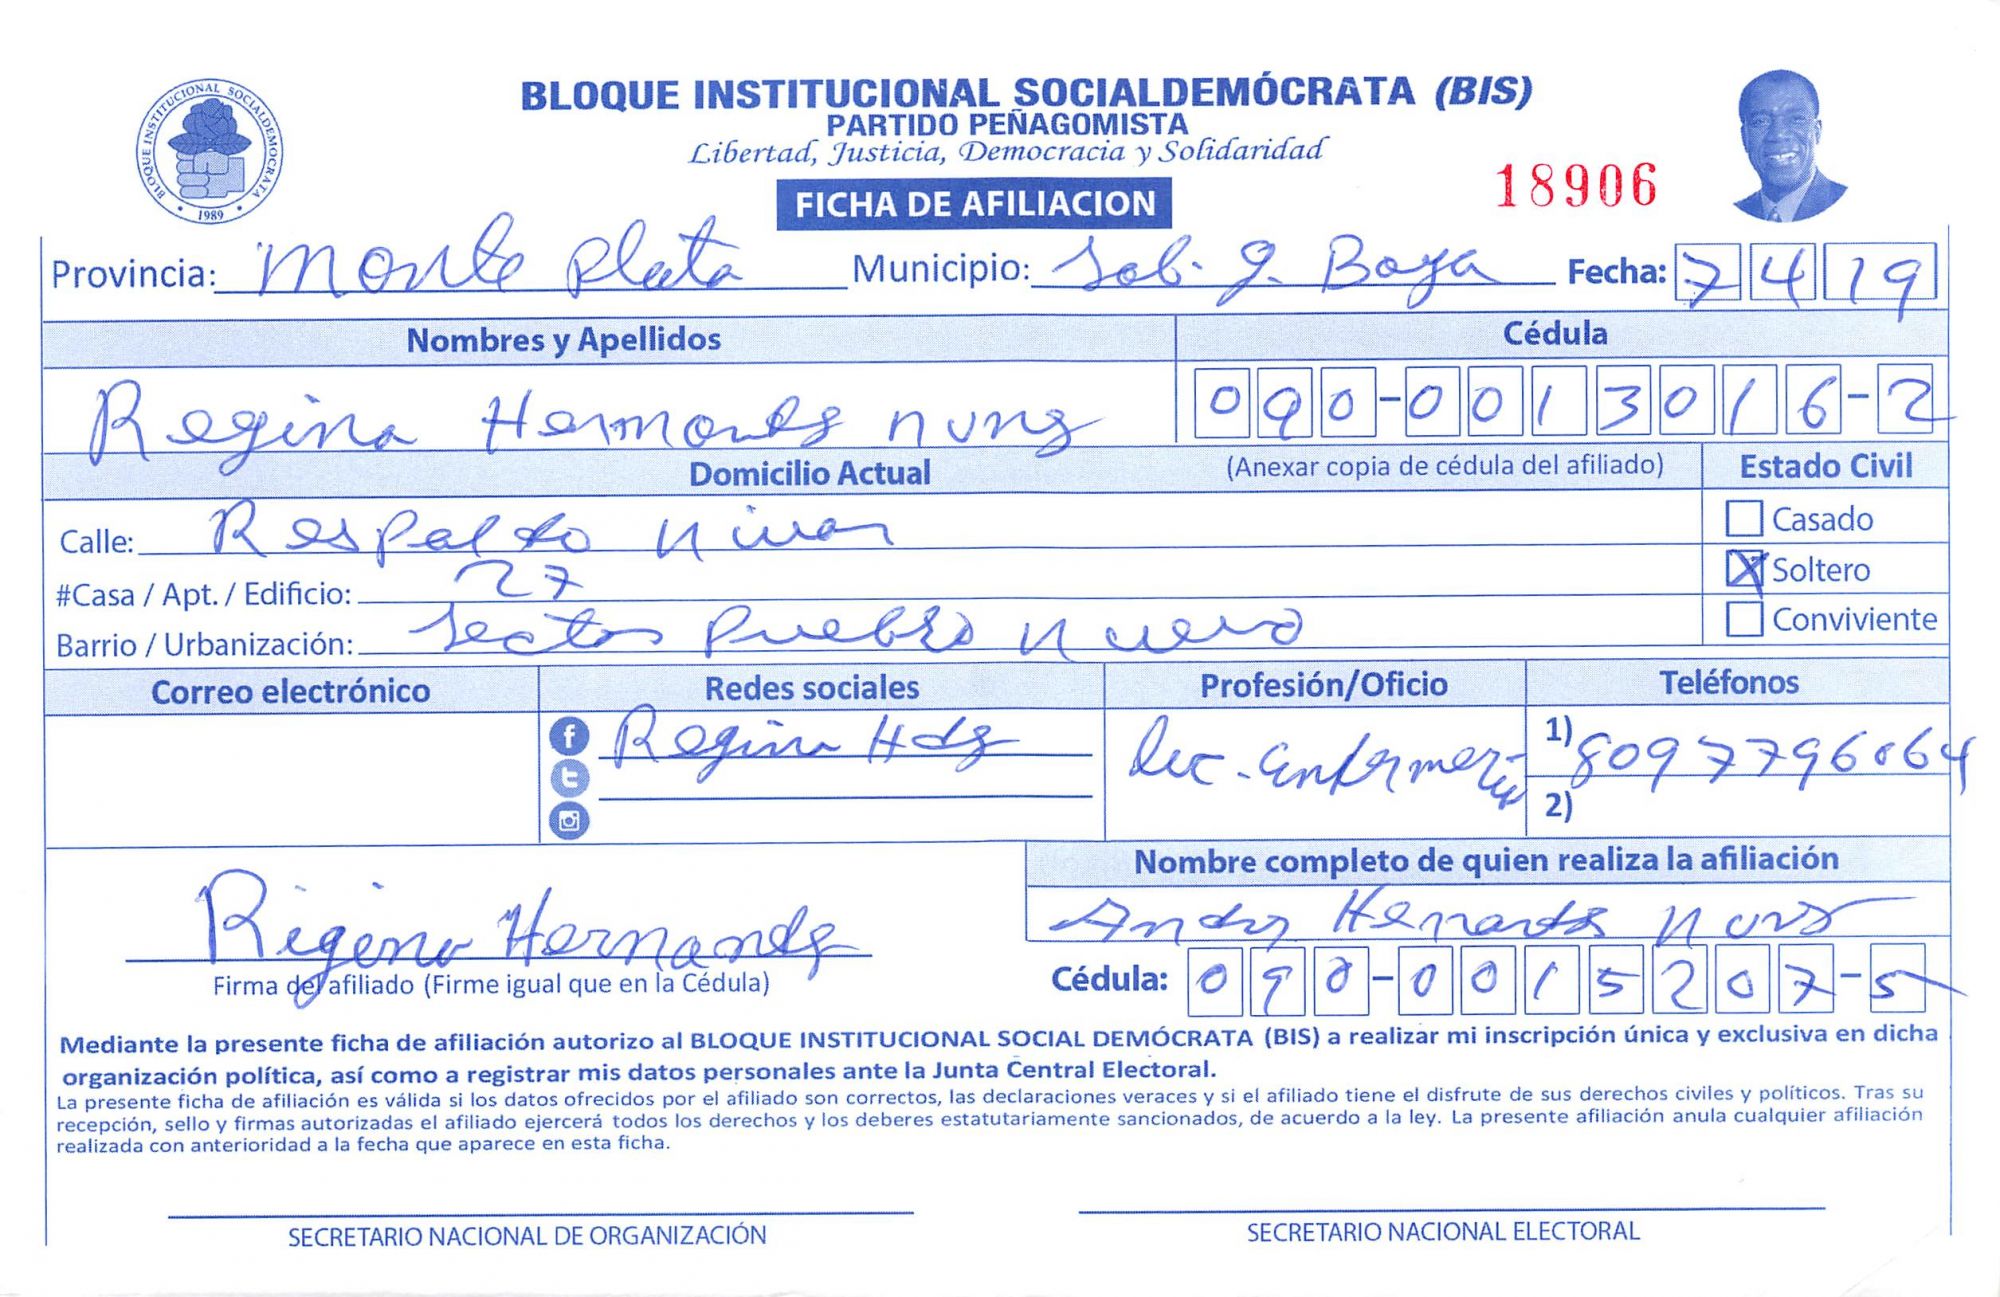 BLOQUE INSTITUCIONAL SOCIALDEMÓCRATA (BIS)
PARTIDO PEÑAGOMISTA
Libertad, Justicia, Democracia y Solidaridad
BLOQUE INSTITUCIONAL SOCIALDEMOCRATA
1989
18906
FICHA DE AFILIACION
Provincia: Monte Plata Municipio: Sab. g. Boya Fecha: 7 4 19
Nombres y Apellidos Cédula
Regina 090-0013016-2
Domicilio Actual (Anexar copia de cédula del afiliado) Estado Civil
Calle: Respaldo Casado
#Casa / Apt. / Edificio: 27 X Soltero
Barrio / Urbanización: Sector Pueblo Nuevo Conviviente
Correo electrónico Redes sociales Profesión/Oficio Teléfonos
Regina Hdz Lic. enfermeria 1) 8097796064
2)
Nombre completo de quien realiza la afiliación
Hernandz
Firma del afiliado (Firme igual que en la Cédula) Cédula: 090-0015207-5
Mediante la presente ficha de afiliación autorizo al BLOQUE INSTITUCIONAL SOCIAL DEMÓCRATA (BIS) a realizar mi inscripción única y exclusiva en dicha
organización política, así como a registrar mis datos personales ante la Junta Central Electoral.
La presente ficha de afiliación es válida si los datos ofrecidos por el afiliado son correctos, las declaraciones veraces y si el afiliado tiene el disfrute de sus derechos civiles y políticos. Tras su
recepción, sello y firmas autorizadas el afiliado ejercerá todos los derechos y los deberes estatutariamente sancionados, de acuerdo a la ley. La presente afiliación anula cualquier afiliación
realizada con anterioridad a la fecha que aparece en esta ficha.
SECRETARIO NACIONAL DE ORGANIZACIÓN SECRETARIO NACIONAL ELECTORAL